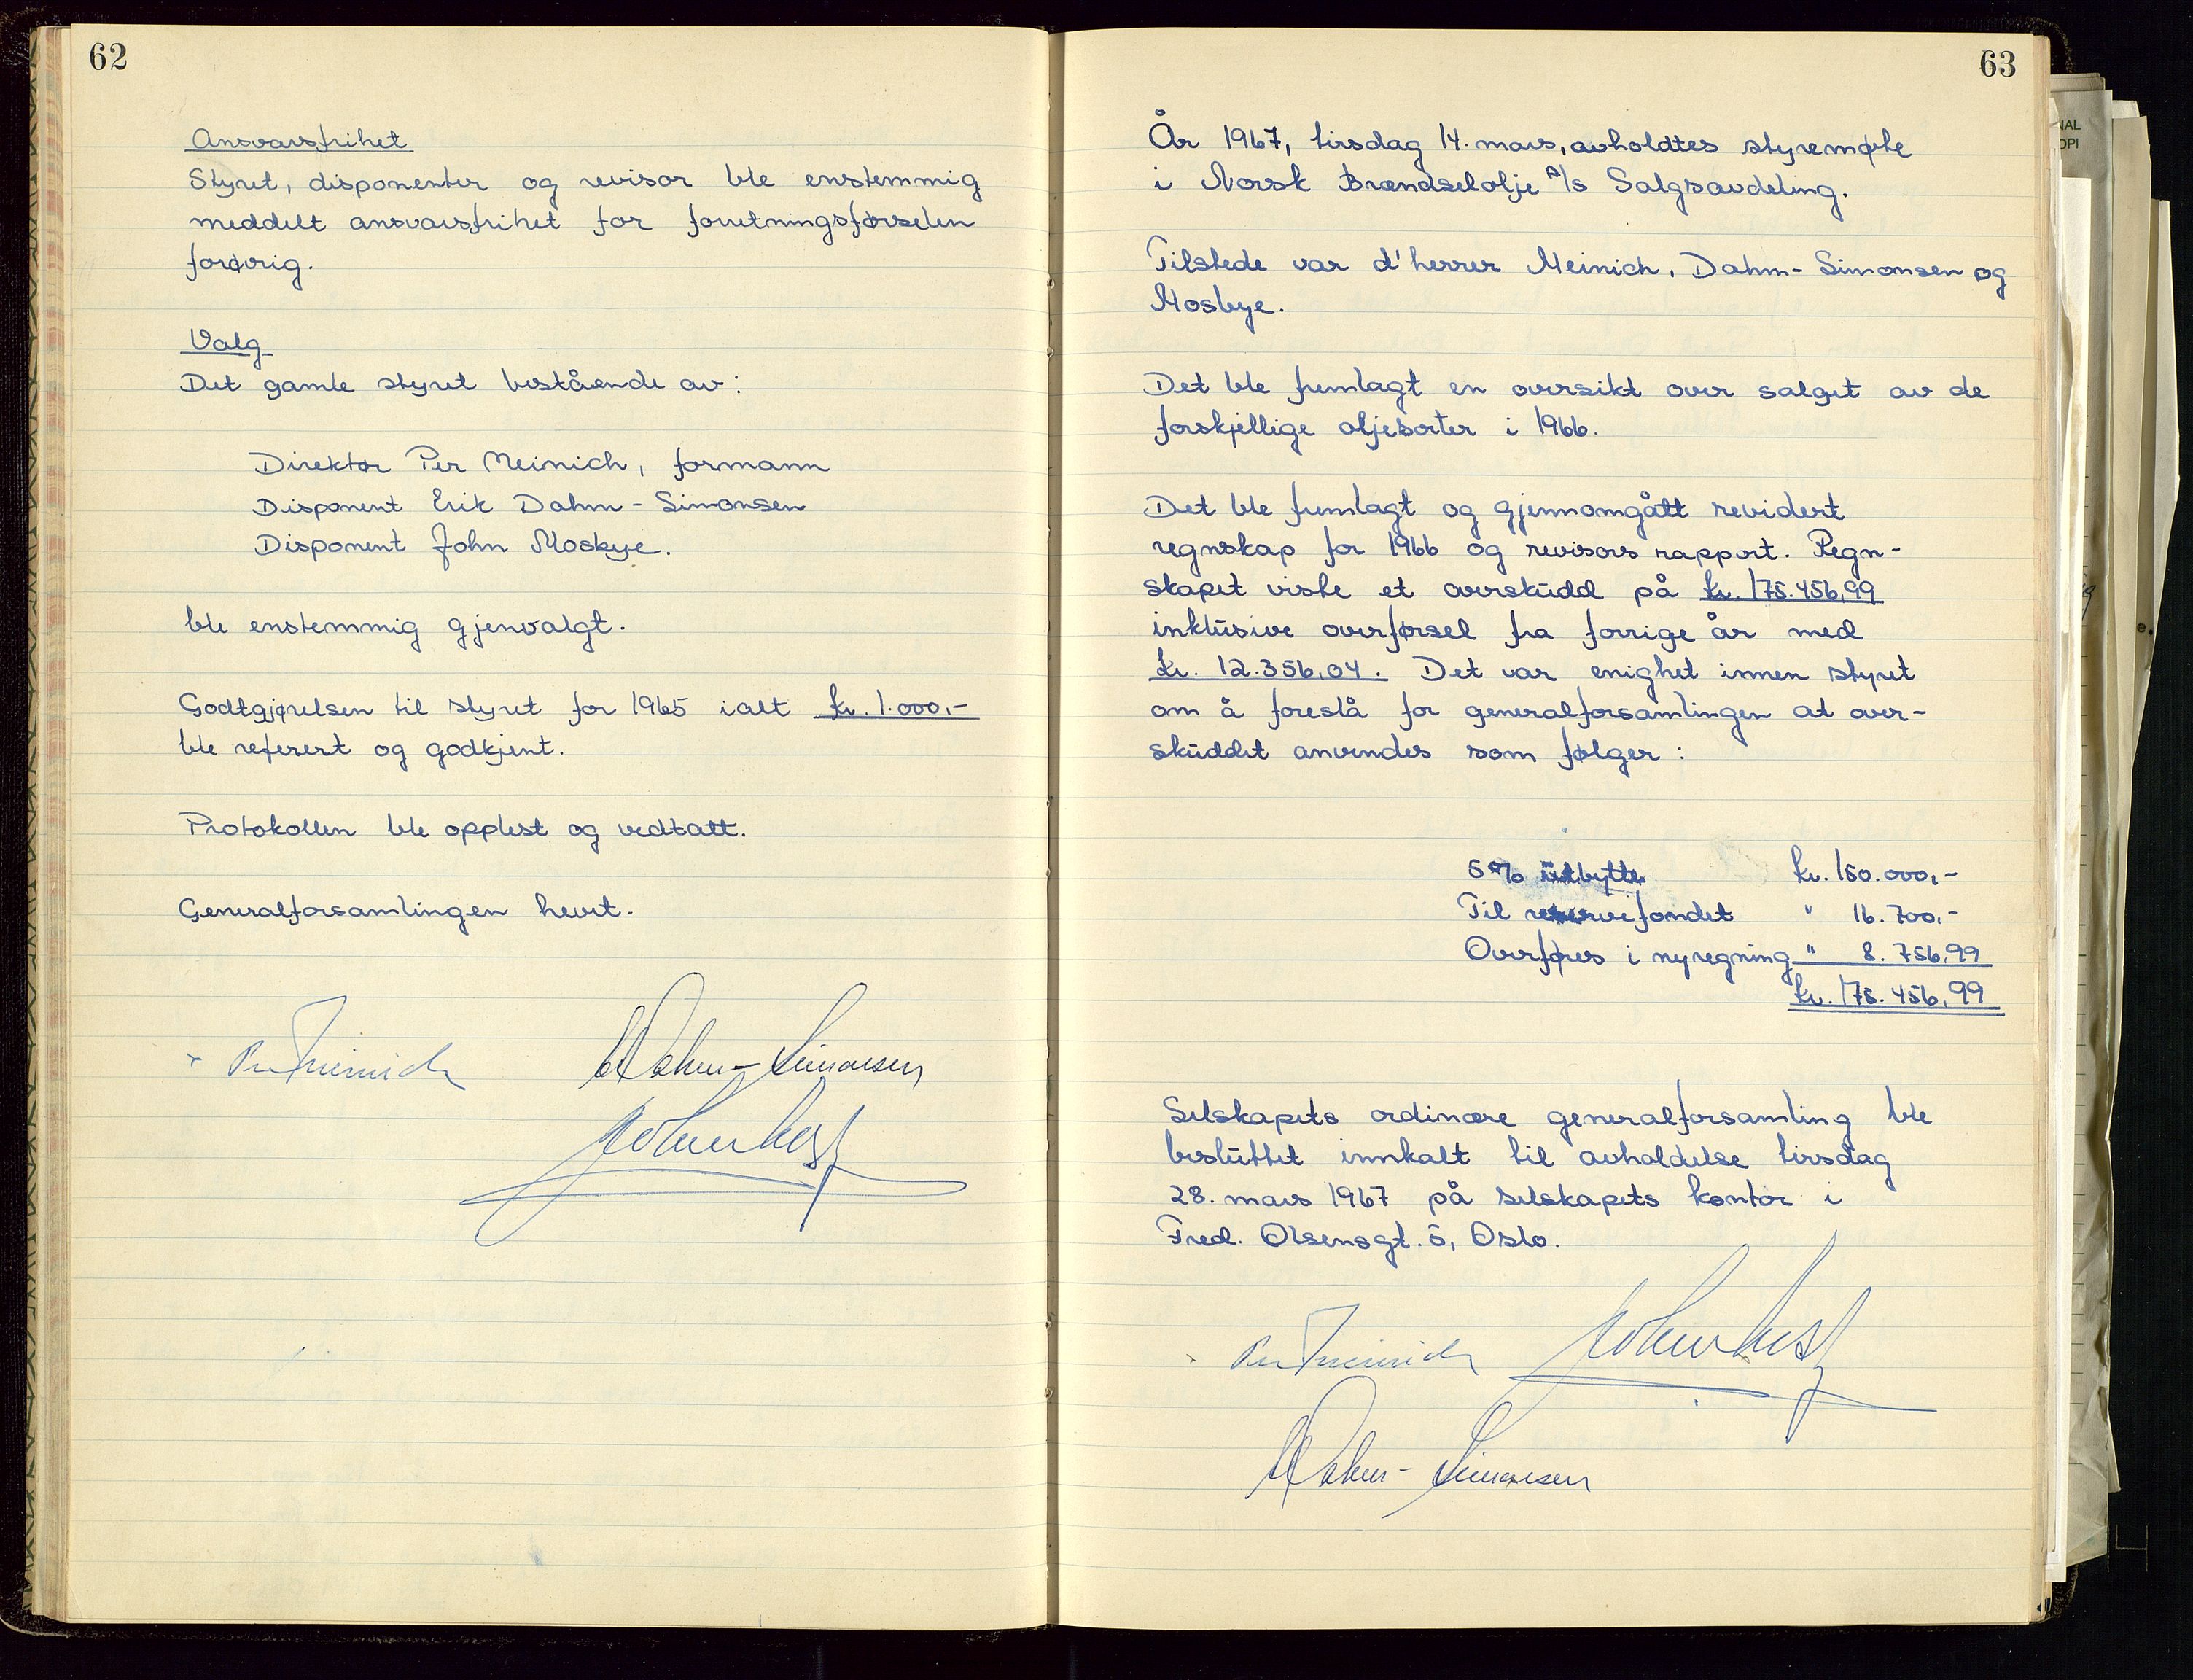 62
Ansvarsfrihet
Styret, disponenter og revisor ble enstemmig
meddelt ansvarsfrihet for forretningsførselen
forøvrig.
Valg
Det gamle styret bestående av:
Direktør Per Meinich, formann
Disponent Erik Dahm-Simonsen
Disponent John Mosbye.
ble enstemmig gjenvalgt.
Godtgjørelsen til styret for 1965 ialt kr. 1.000,-
ble referert og godkjent.
Protokollen ble opplest og vedtatt.
Generalforsamlingen hevet.
Per Meinich Dahm-Simonsen
63
År 1967, tirsdag 14. mars, avholdtes styremøte
i Norsk Brændselolje A/S Salgsavdeling.
Tilstede var d'herrer Meinich, Dahm-Simonsen og
Mosbye.
Det ble fremlagt en oversikt over salget av de
forskjellige oljesorter i 1966.
Det ble fremlagt og gjennomgått revidert
regnskap for 1966 og revisors rapport. Regn-
skapet viste et overskudd på kr. 175.456,99
inklusive overførsel fra forrige år med
kr. 12.356,04. Det var enighet innen styret
om å foreslå for generalforsamlingen at over-
skuddet anvendes som følger:
5% utbytte kr. 150.000,-
Til reservefondet " 16.700,-
Overføres i ny regning " 8.756,99
kr. 175.456,99
Selskapets ordinære generalforsamling ble
besluttet innkalt til avholdelse tirsdag
28. mars 1967 på selskapets kontor i
Fred. Olsensgt. 5, Oslo.
Per Meinich
Dahm-Simonsen